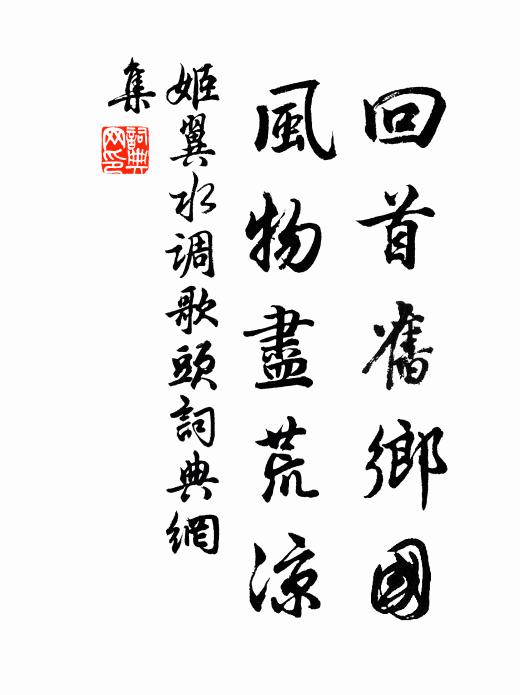 回首舊鄉國
風物盡荒涼
姬翼水調歌頭詞典網
集
詞典网印